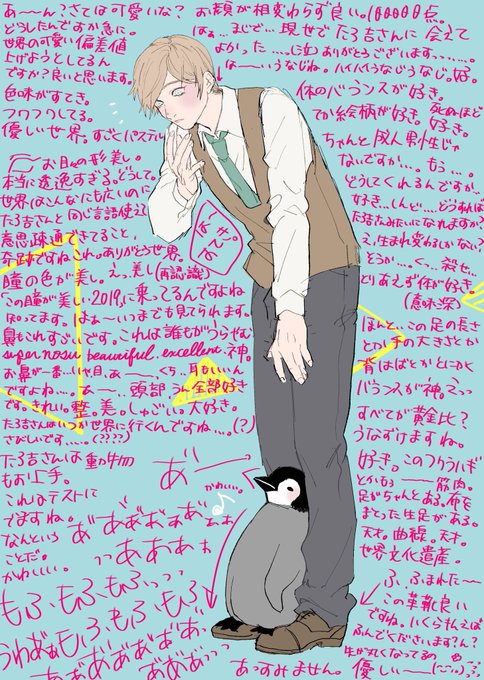 あ〜ん?さては可愛いな?
どうしたんですか急に。
世界の可愛い偏差値
上げようとしてるん
ですか?良いと思います。
色味がすてき。
フワフワしてる。
優しい世界。すごくパステル
お目々の形美し。
本当に透逸すぎる。どうして。
世界はこんなにも広いのに
たろ吉さんと同じ言語使えて
意思疎通できてること、
奇跡ですねこれ。ありがとう世界。
瞳の色が美し。えっ、美し(再認識)
この瞳が美しい2019に乗ってるんですよね
知ってます。はぁ〜いつまでも見てられます。
鼻もこれすごいです。これは誰もがうらやむ
super nosu beautiful excellent 神。
お鼻が一番…いや、目、あ〜、くち、耳もいいん
ですよね…。あ〜、頭部全部好き
です。きれい。整。美。しゅごい。大好き。
たろ吉さんはいつか世界に行くんですね…。(?)
さびしいです…。(????)
お顔が相変わらず良い。100000点。
はぁ…まじで…現世でたろ吉さんに会えて
よかった…。ありがとうございます……。
は〜いうなじね。ハイハイうなじうなじ。好。
体のバランスが好き。
てか絵柄が好き。死ぬほど
好き。
ちゃんと成人男性じゃ
ないですか…。もぅ…。
どうしてくれるんですか…
好き…しんど…。どうすれば
たろ吉さんみたいになれますか?
え、生まれ変わるしかない?
とうか…。く…殺せ…
とりあえず体が好き。
(意味深)
はーっ
すてき。
ほんと…この足の長さ
との手の大きさとか
背はばとかとにかく
バランスが神。えっ
すべてが黄金比?
うなずけますね。
好き。このフクラハギ
とかもぅ〜筋肉。
足がちゃんとある。布を
まとった生足がある。
天才。曲線。天才。
世界文化遺産。
たろ吉さんは動物
もお上手。
これはテストに
でますね。
なんという
ことだ。
かわいいい。
あ゛ー
かわいい。
あ゛あ゛あ゛ぁあ゛ぁぁ
っっあああぉ
もふ、もふ、もふ、っっ
もふもふ、もふ
うわあ゛ぁもふ、もふ、もふ
あ゛あ゛あ゛あ゛あ゛あ゛、
あ゛あ゛あ゛っっ
あっすみません。
ふ、ふまれた〜
この革靴良い
ですね。いくらはらえば
ふんでくださいます?ん?
先が丸くなってるの
優しい〜